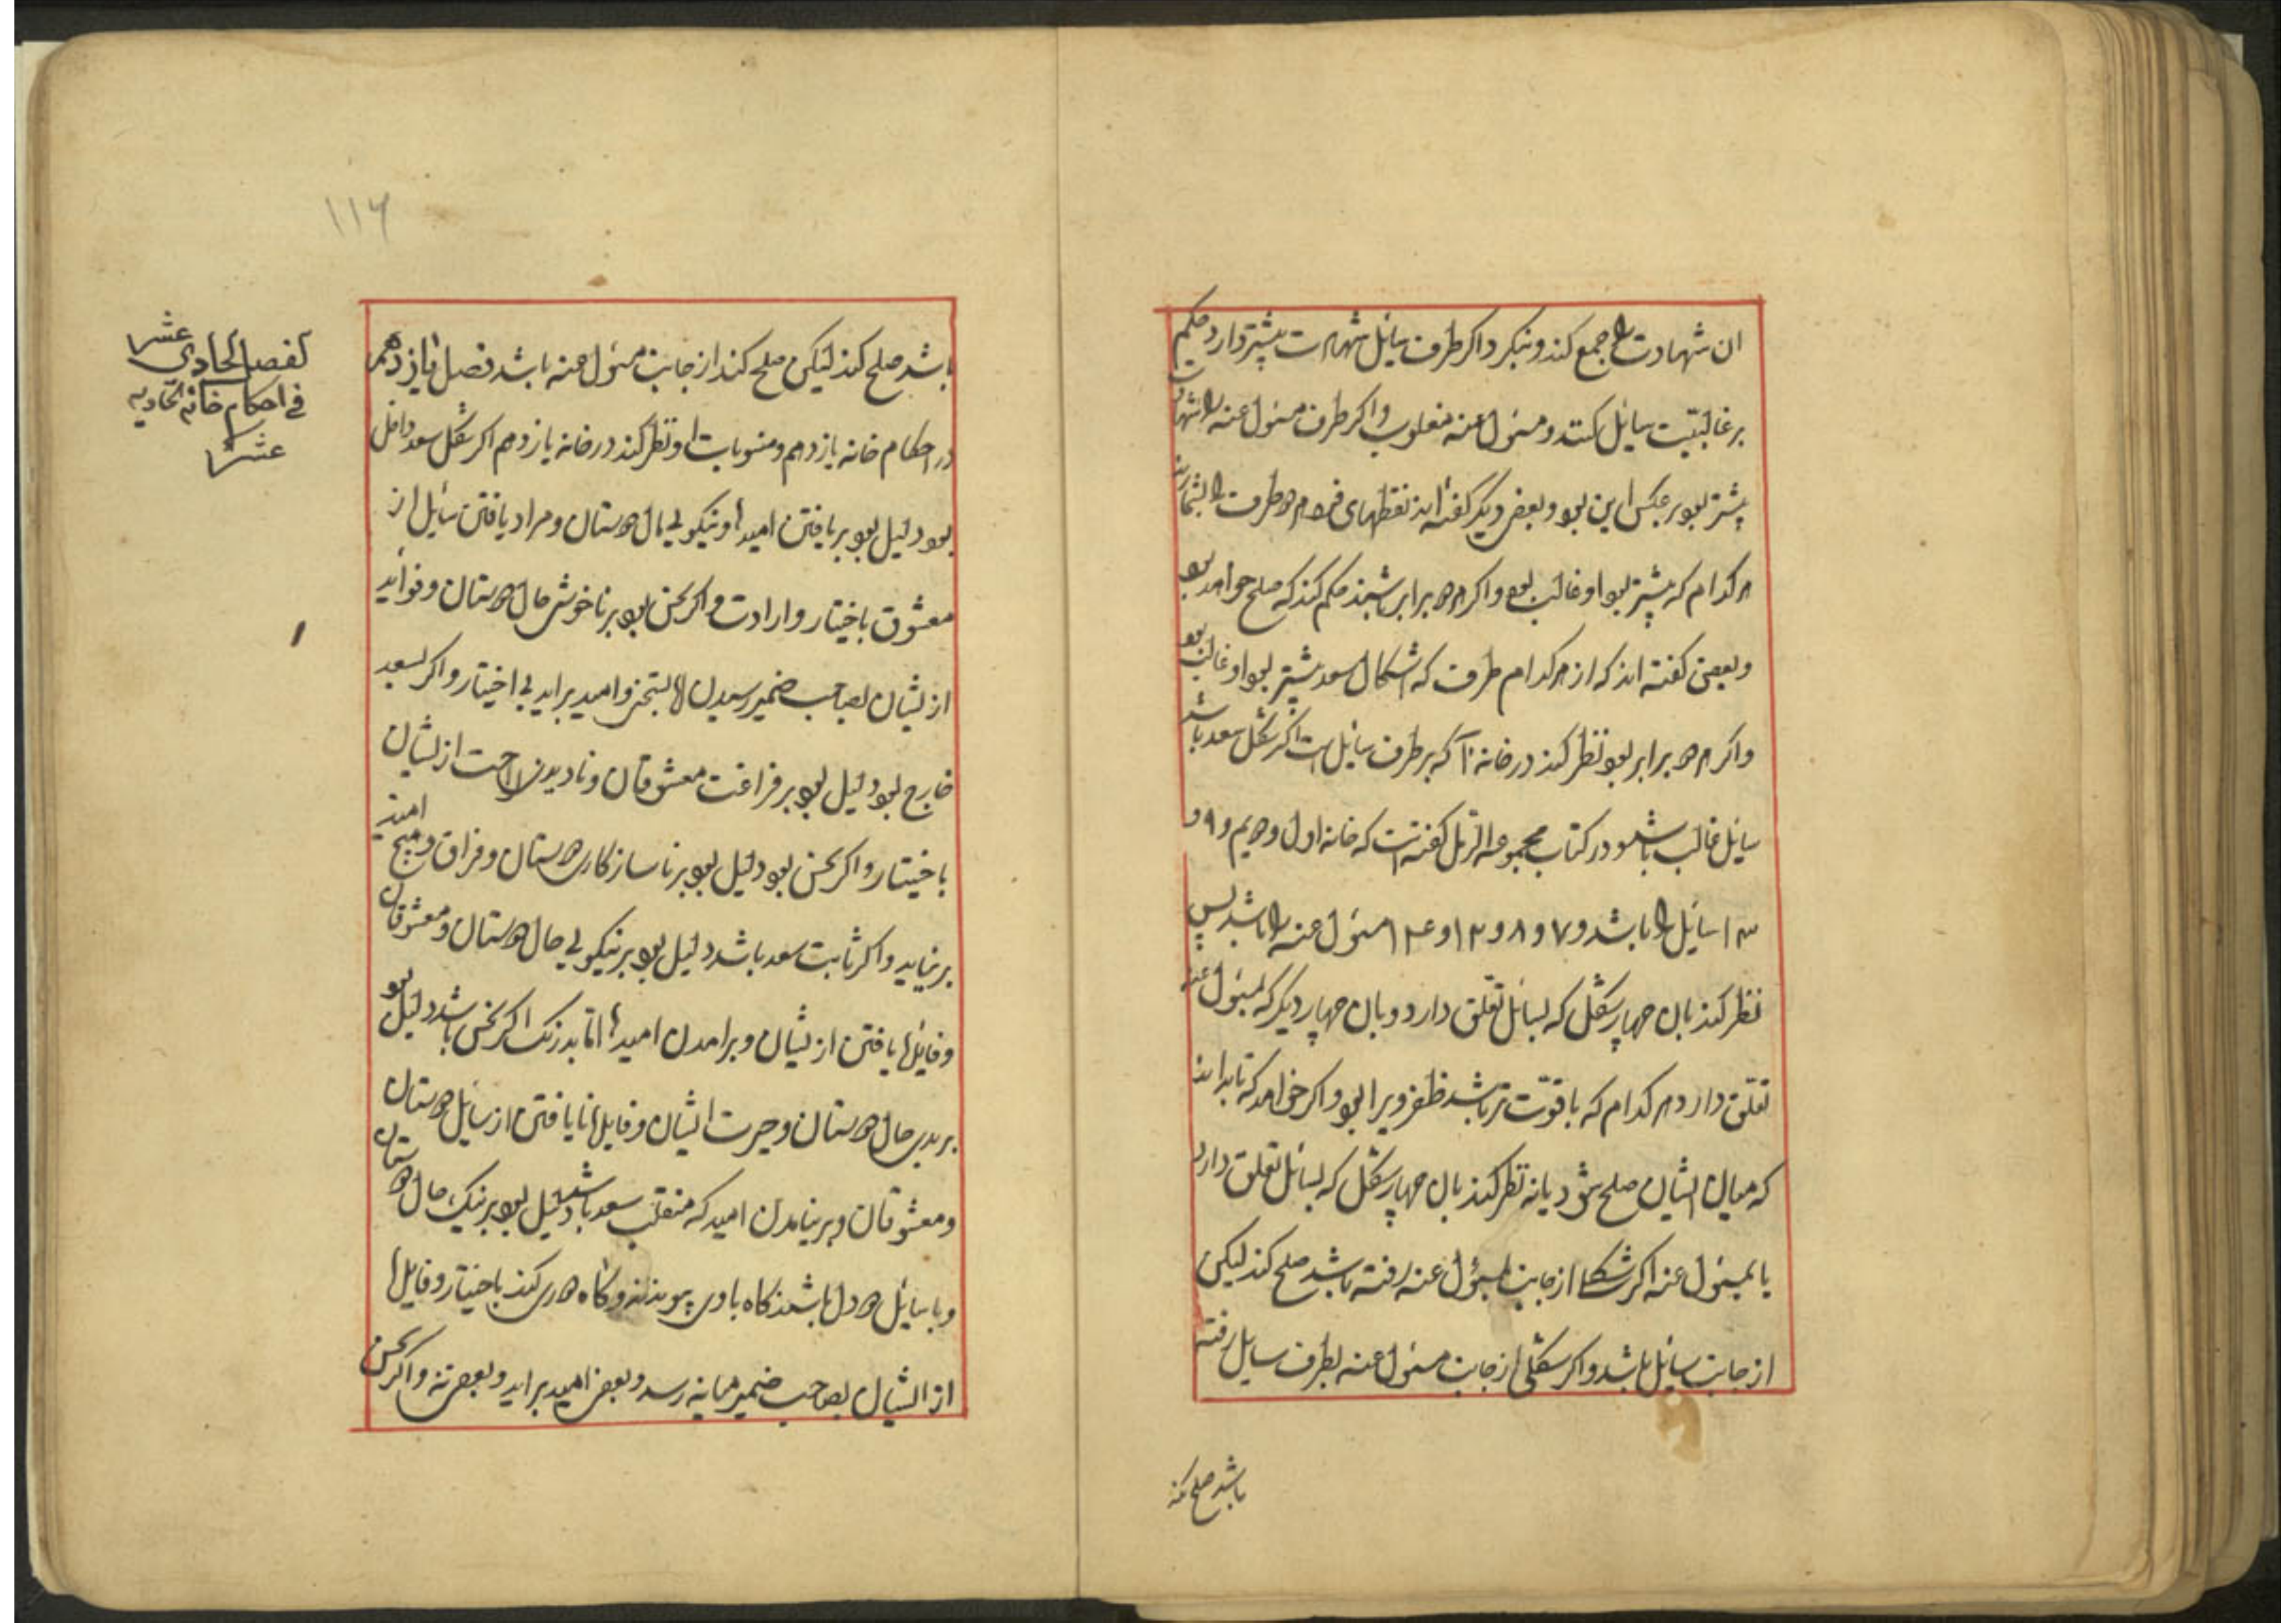 ان شهادت را جمع کند و بنکرد اکر طرف سائل شهادت بیشتر دارد حکم
بر غالبیت سائل کند و مسئول عنه مغلوب و اکر طرف مسئول عنه را شهادت
بیشتر بود بر عکس این بود و بعضی دیکر کفته اند نقطهای فرد هر دو طرف را بشمارند
هر کدام که بیشتر بود او غالب بود و اکر هر دو برابر باشند حکم کند که صلح خواهد بود
و بعضی کفته اند که از هر کدام طرف که اشکال سعد بیشتر بود او غالب بود
و اکر هر دو برابر بود نظر کند در خانه که بر طرف سائل است اکر شکل سعد باشد
سائل غالب باشد و در کتاب مجموعه الرمل کفته است که خانه اول و دهیم و ۹ و
۱۳ سائل را باشد و ۷ و ۸ و ۱۲ و ۱۴ مسئول عنه را باشد پس
نظر کند بان چهار شکل که بسائل تعلق دارد و بان چهار دیکر که بمسئول عنه
تعلق دارد هر کدام که با قوت تر باشد ظفر ویرا بود و اکر خواهد که تا بداند
که میان ایشان صلح شود یا نه نظر کند بان چهار شکل که بسائل تعلق دارد
یا بمسئول عنه اکر شکلی از جانب بمسؤل عنه رفته باشد صلح کند لیکن
از جانب سائل باشد و اکر شکلی از جانب مسئول عنه بطرف سایل رفته
باشد صلح کند
۱۱۶
باشد صلح کند لیکن صلح کند از جانب مسئول عنه باشد فصل یازدهم
در احکام خانه یازدهم و منسوبات او نظر کند در خانه یازدهم اکر شکل سعد داخل
بود دلیل بود بر یافتن امیدها و نیکویی حال دوستان و مراد یافتن سائل از
معشوق باختیار و ارادت و اکر نحس بود بر ناخوشی حال دوستان و فواید
از یشان بصاحب ضمیر رسیدن الا بسختی و امید براید بی اختیار و اکر سعد
خارج بود دلیل بود بر فراغت معشوقان و نادیدن راحت از یشان
باختیار و اکر نحس بود دلیل بود بر ناسازکاری دوستان و فراق و هیچ امید
برنیاید و اکر ثابت سعد باشد دلیل بود بر نیکویی حال دوستان و معشوقان
و فایدها یافتن از یشان و برامدن امیدها اما بدرنک اکر نحس باشد دلیل بود
بر بدی حال دوستان و حیرت ایشان و فایدها نایافتن از سائل دوستان
و معشوقان و برنیامدن امید که منقلب سعد باشد دلیل بود بر نیک حال دوستان
و با سائل دو دل باشند کاه با وی پیوندند و کاه دوری کنند باختیار و فایدها
از ایشان بصاحب ضمیر میانه رسد و بعضی امید براید و بعضی نه و اکر نحس
لفصل الحادی عشر
فی احکام خانه الحادیه
عشر